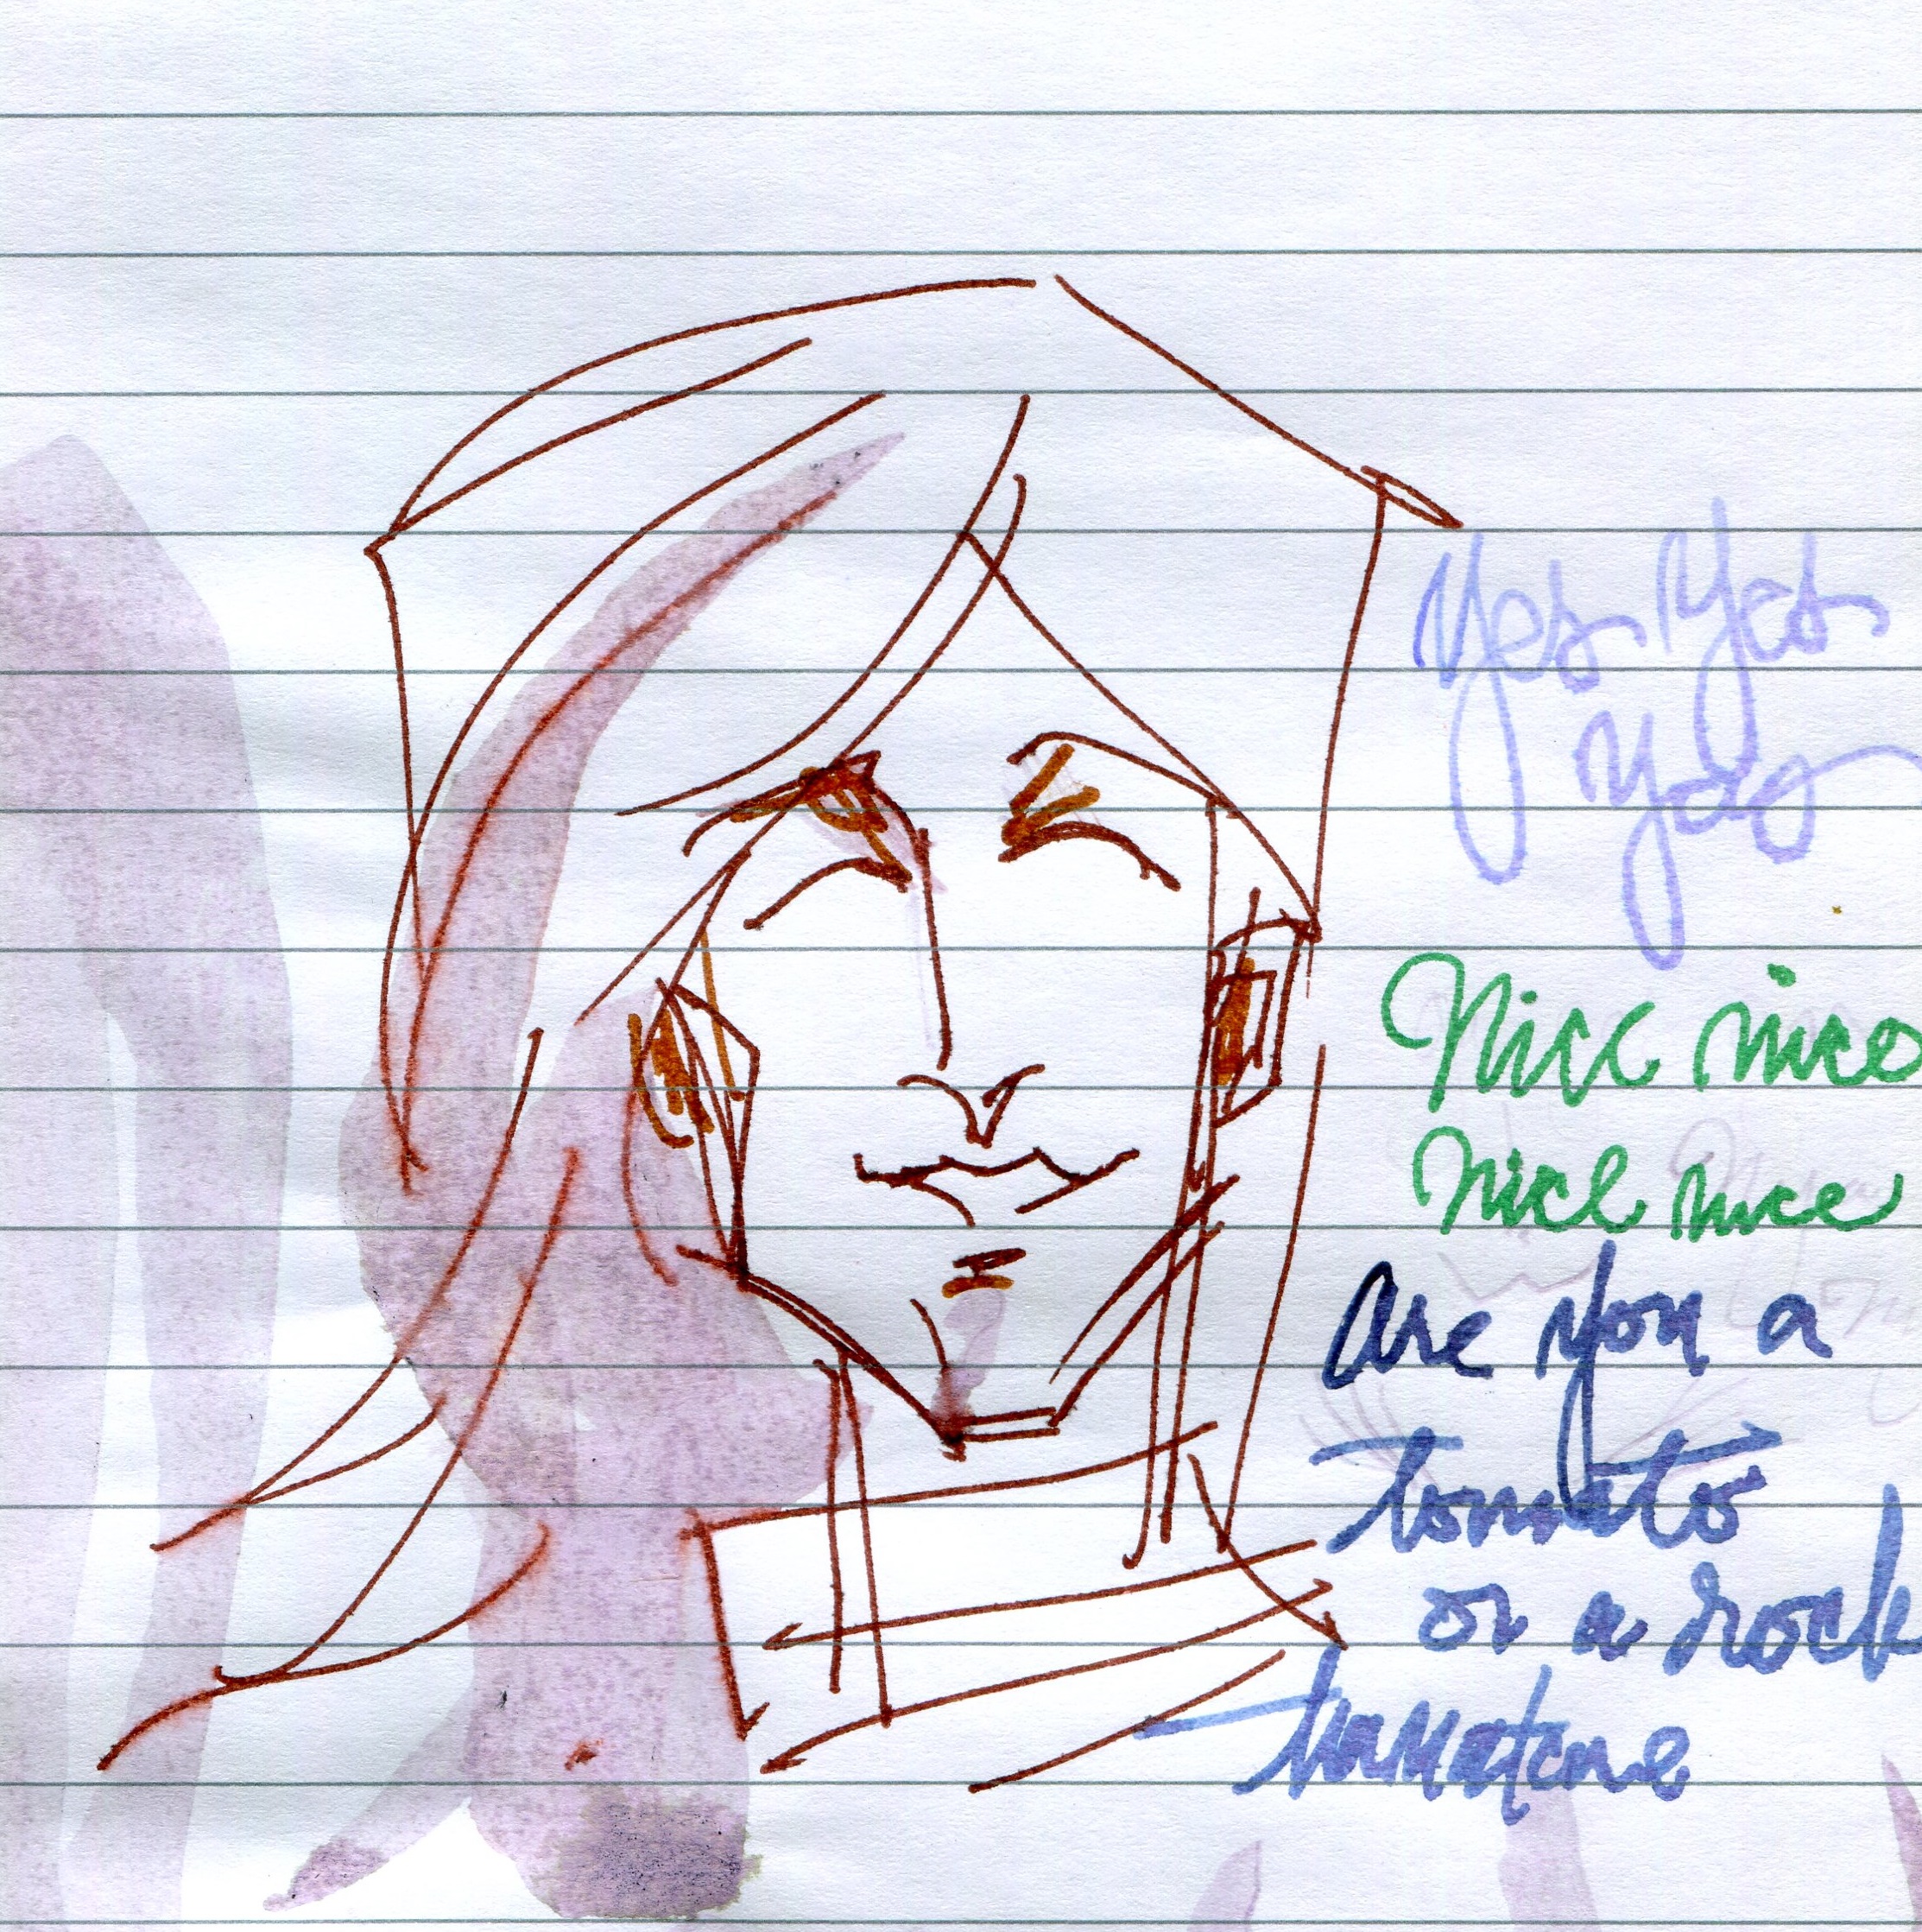 Yes Yes
Yes
Nice nice
nice nice
are you a
tomato
or a rock